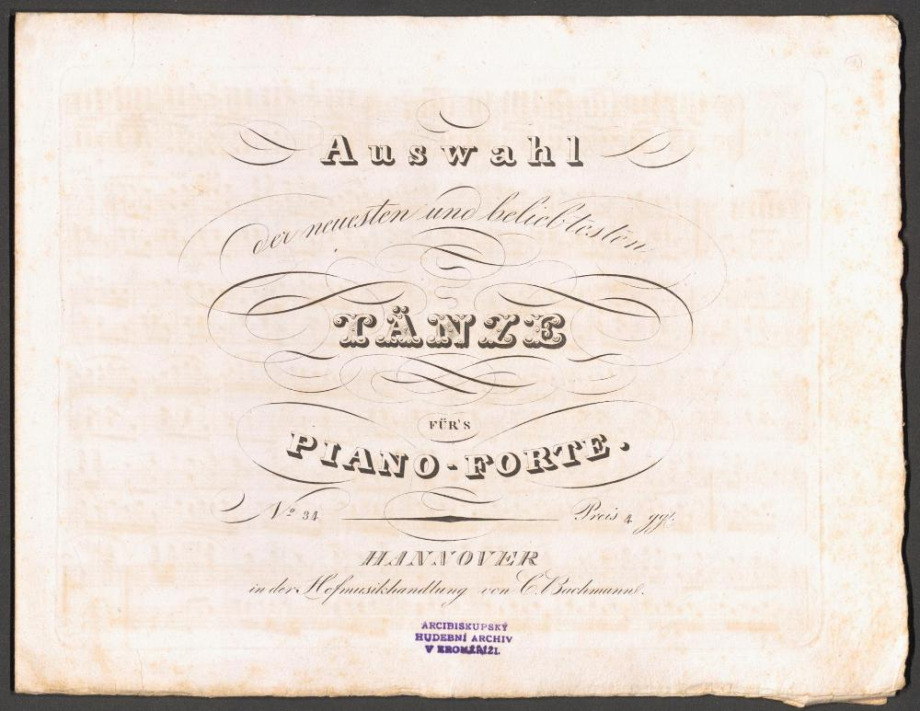 Auswahl
der neuesten und beliebtesten
TÄNZE
FÜR'S
PIANO-FORTE.
No 34 Preis 4 ggr.
HANNOVER
in der Hofmusikhandlung von C. Bachmann.
ARCIBISKUPSKÝ
HUDEBNÍ ARCHIV
V KROMĚŘÍŽI.